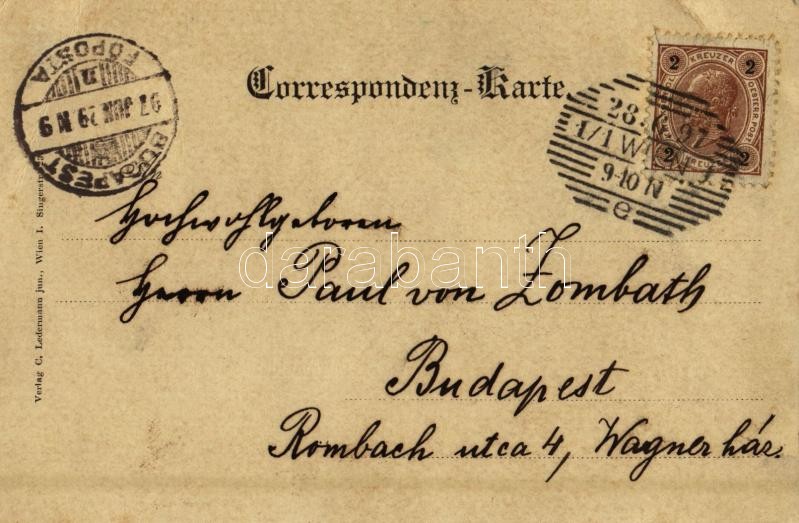 Correspondenz-Karte.
2 KREUZER 2
2 KREUZER 2
OESTERR.POST
BUDAPEST
FŐPOSTA
97 JUN 29 N 9
28. 6. 97
1/1 WIEN 1
9-10 N
e
Hochwohlgeboren
Herrn Paul von Zombath
Budapest
Rombach utca 4, Wagner ház.
Verlag C. Ledermann jun., Wien I.
darabanth